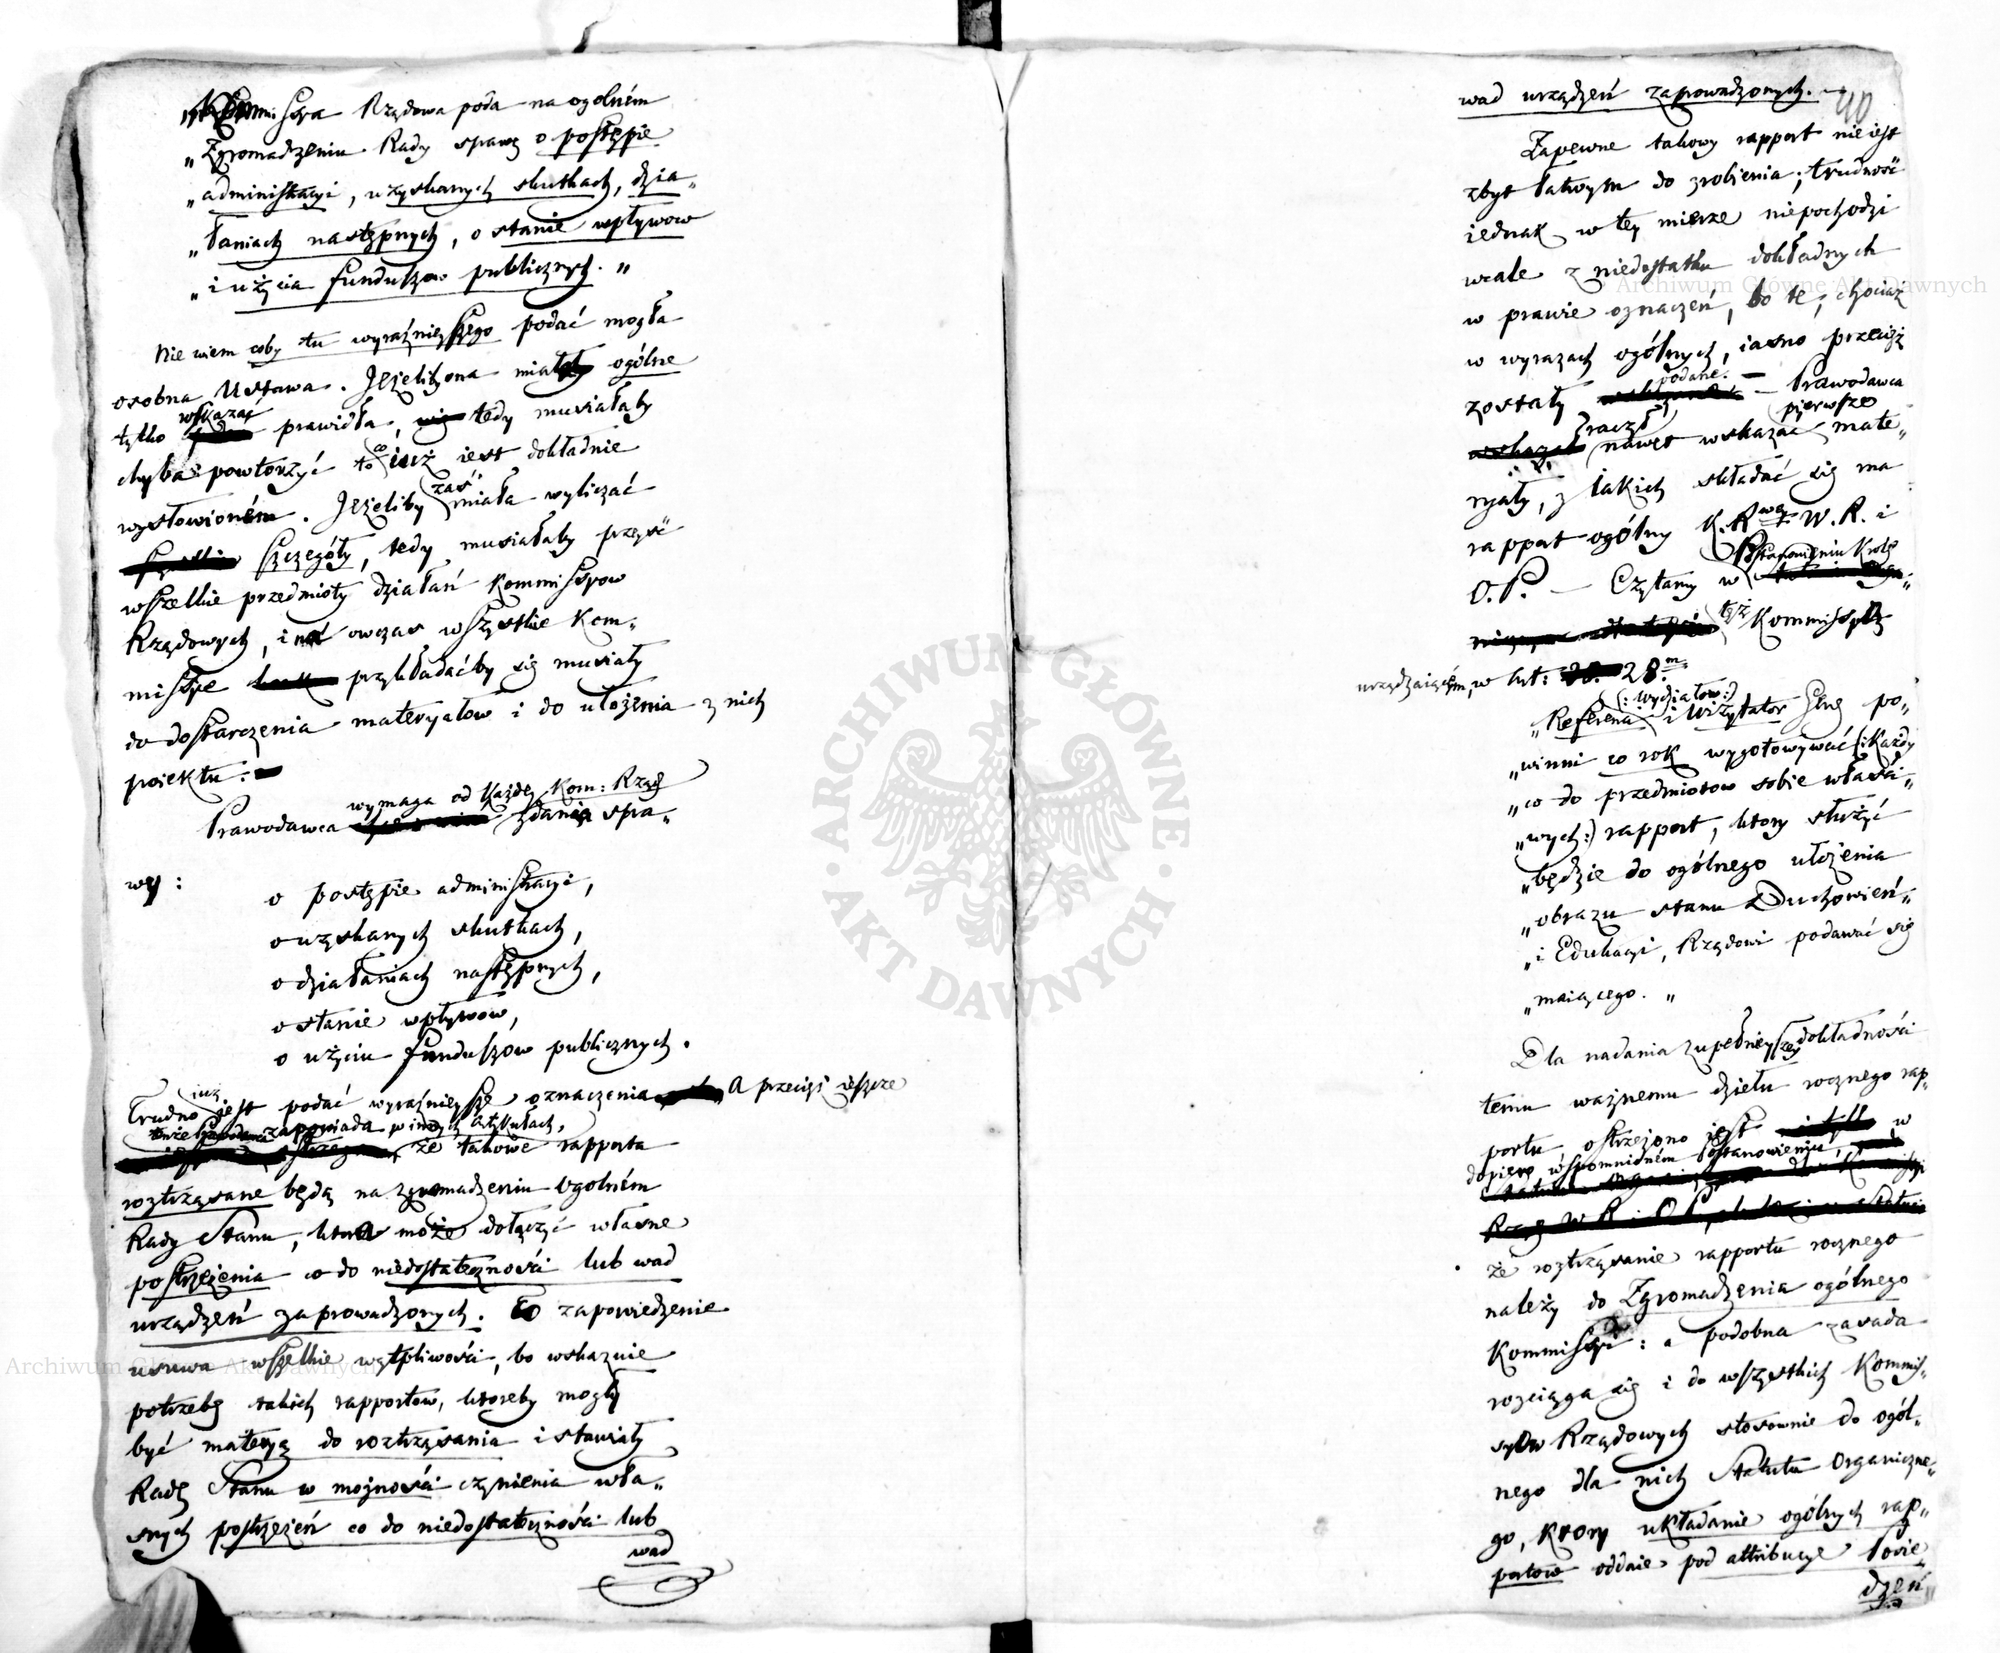 Kommissya Rządowa poda na ogolném
„Zgromadzeniu Rady sprawę o postępie
„administracyi, uzyskanych skutkach, dzia„
„łaniach następnych, o stanie wpływow
„i użycia funduszow publicznych. „
Nie wiem coby tu wyraźnieyszego podać mogła
osobna Ustawa. Jeżeliby ona miała ogólne
tylko wskazać prawidła, tedy musiałaby
chyba powtorzyć to co iuż iest dokładnie
wysłowioném. Jeżeliby zaś miała wyliczać
szczegóły, tedy musiałaby przeyść
wszelkie przedmioty działań Kommissyow
Rządowych, i owczas wszystkie Kom„
missye przykładaćby się musiały
do dostarczenia materyałow i do ułożenia z nich
proiektu.
Prawodawca wymaga od każdey Kom: Rząd zdania spra„
wy:
o postępie administracyi,
o uzyskanych skutkach,
o działaniach następnych,
o stanie wpływow,
o użyciu funduszow publicznych.
Trudno iuż jest podać wyraźnieysze oznaczenia A przecięż ieszcze
tenże Prawodawca zapowiada w innych artykułach,
że takowe rapporta
roztrząsane będą na zgromadzeniu ogolném
Rady Stanu, ktora może dołączyć własne
postrzeżenia co do niedostateczności lub wad
urządzeń zaprowadzonych. To zapowiedzenie
usuwa wszelkie wątpliwości, bo wskazuie
potrzebę takich rapportow, ktoreby mogły
być materyą do roztrząsania i stawiały
Radę Stanu w możności czynienia wła„
snych postrzeżeń co do niedostateczności lub
wad
40
wad urządzeń zaprowadzonych. —
Zapewne takowy rapport nie iest
zbyt łatwym do zrobienia; trudność
iednak w tey mierze niepochodzi
wcale z niedostatku dokładnych
w prawie oznaczeń, bo te, chociaż
w wyrazach ogólnych, iasno przecięż
zostały podane. — Prawodawca
raczył nawet wskazać pierwsze mate„
ryały, z iakich składać się ma
rapport ogólny K. Rwey W. R. i
O. P. — Czytamy w Postanowieniu Krolę
też Kommissyę
urządzaiącém, w Art: 28.m
„Referenci (: wydziałow :) i Wizytator Jlny po„
„winni co rok wygotowywać (: każdy
„co do przedmiotow sobie właści„
„wych :) rapport, ktory służyć
„będzie do ogólnego ułożenia
„obrazu stanu Duchowień„
„i Edukacyi, Rządowi podawać się
„maiącego. „
Dla nadania zupełnieyszey dokładności
temu ważnemu dziełu rocznego rap„
portu ostrzeżono jest w
dopiero wspomnioném Postanowieniu,
że roztrząsanie rapportu rocznego
należy do Zgromadzenia ogólnego
Kommissyi: a podobna zasada
rozciąga się i do wszystkich Kommis„
syow Rządowych stosownie do ogól„
nego dla nich Statutu Organiczne„
go, ktory układanie ogólnych rap„
portow oddaie pod attribucye Posie„
dzeń
ARCHIWUM GŁÓWNE
AKT DAWNYCH
Archiwum Główne Akt Dawnych
Archiwum Główne Akt Dawnych